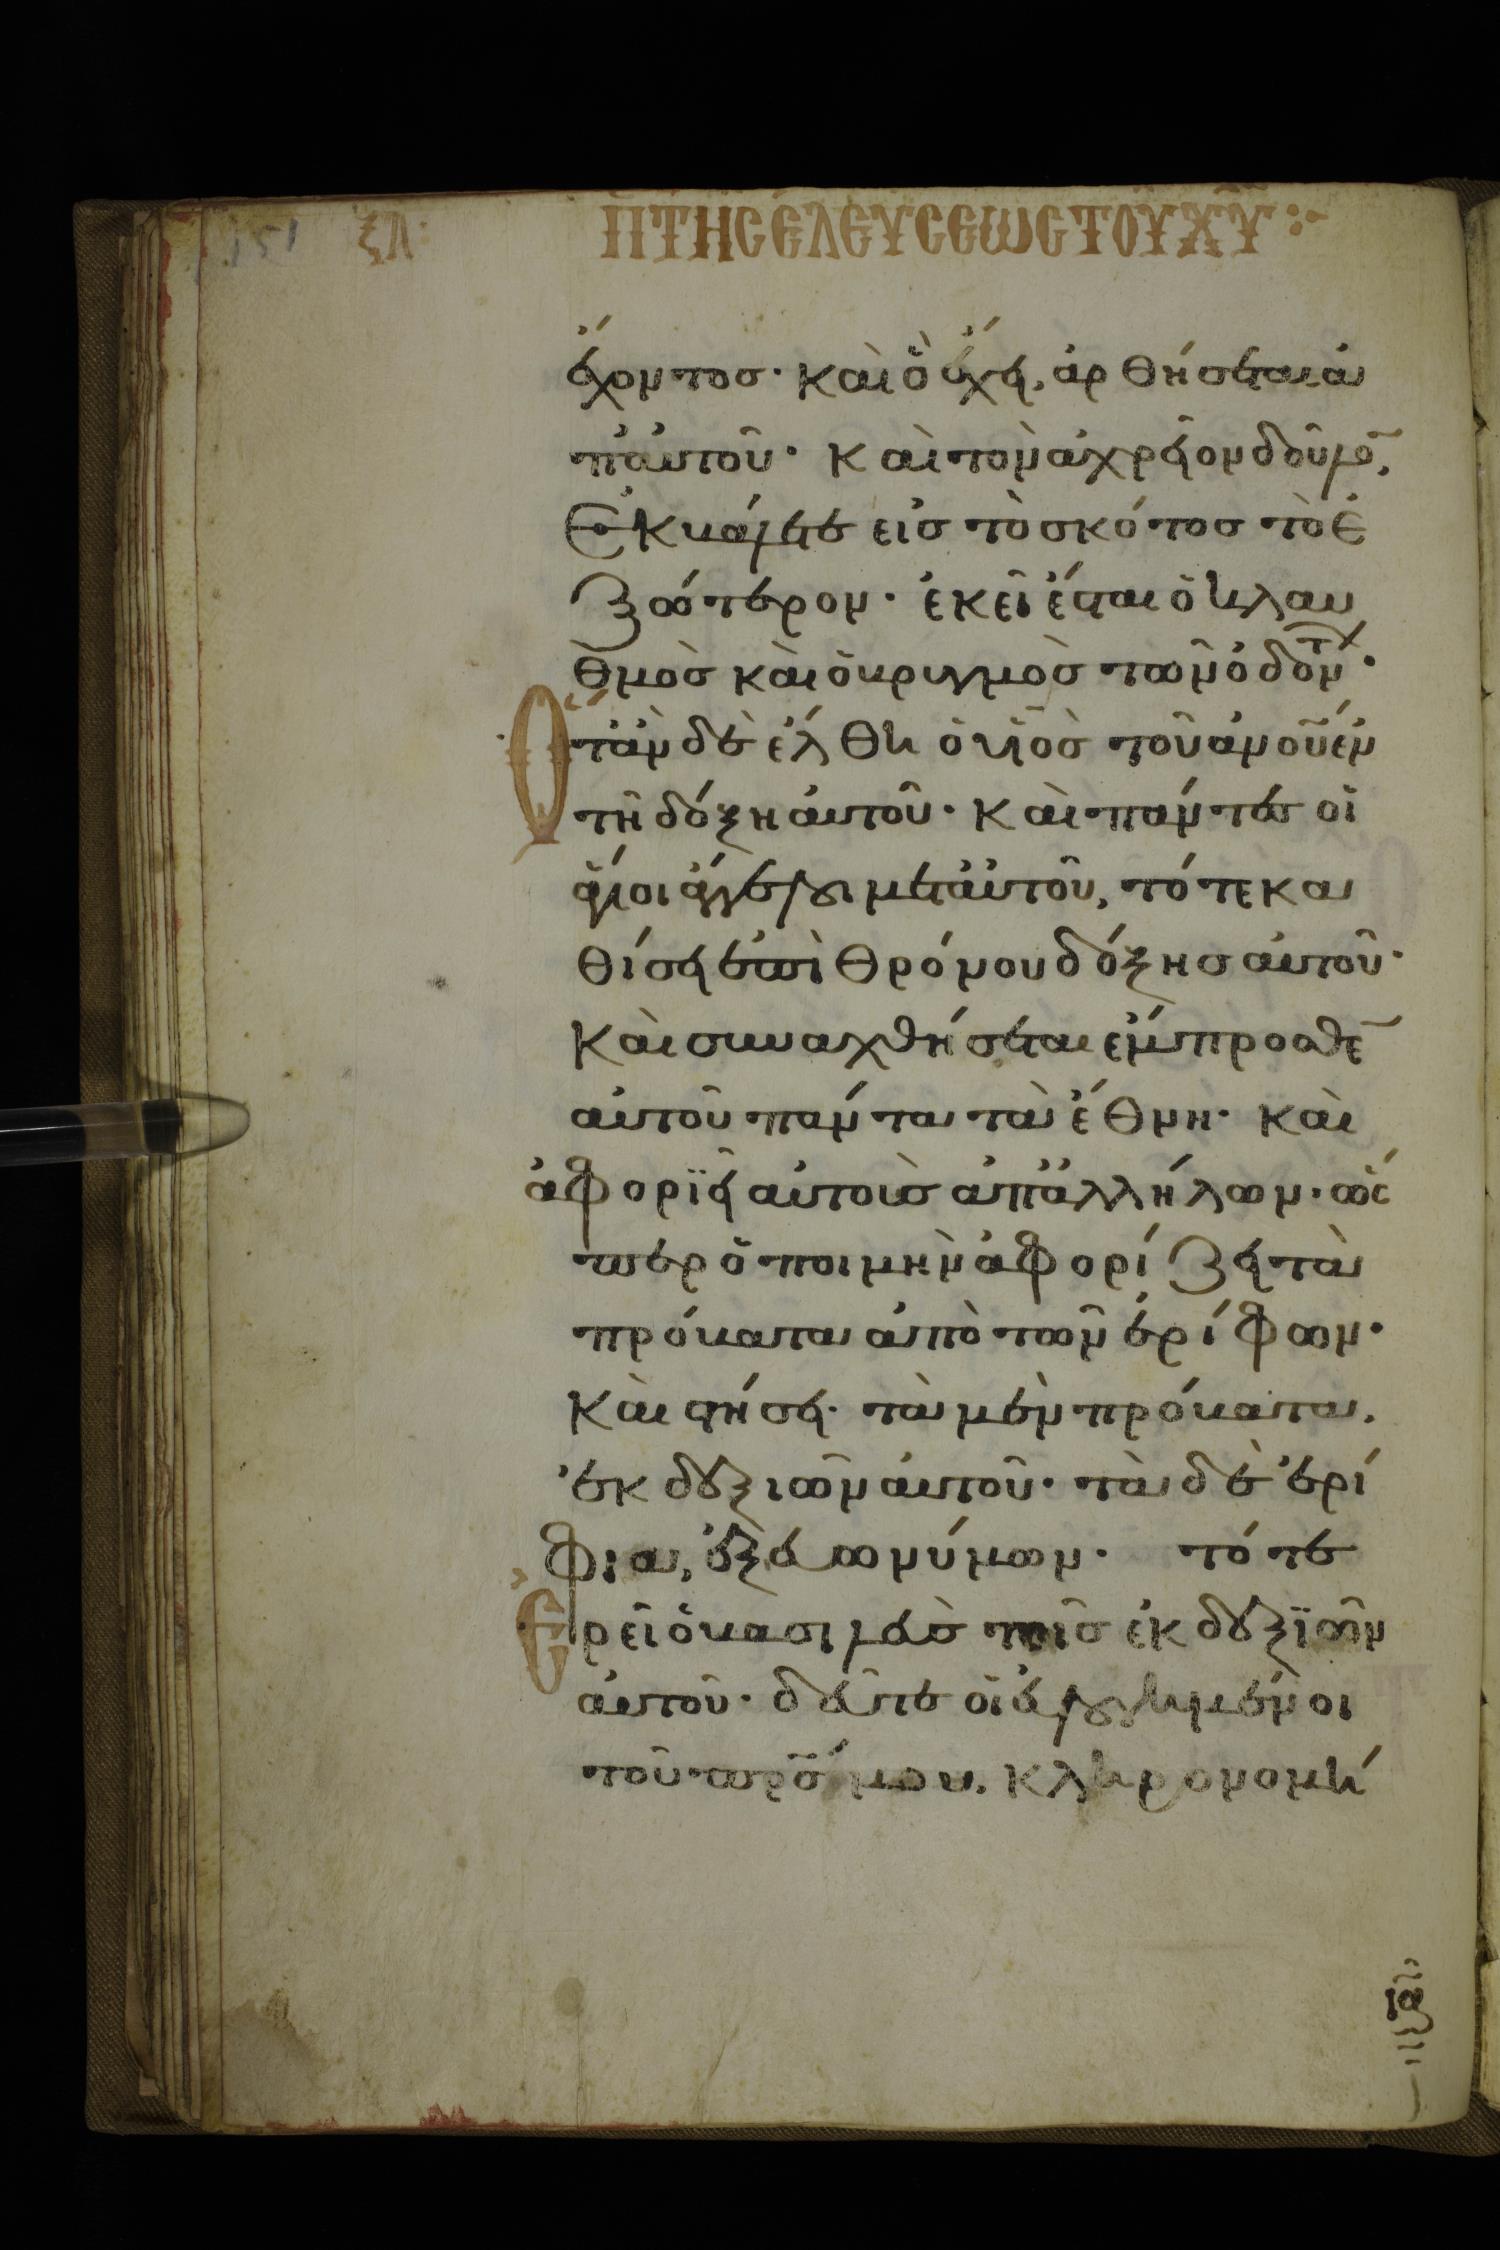 ξΛ:
Π ΤΗϹ ΕΛΕΥϹΕΩϹ ΤΟΥ ΧΥ
ἔχοντοσ· καὶ ὃ ἔχει, ἀρθήσεται ἀ
π' ἀυτοῦ· καὶ τὸν ἀχρεῖον δοῦλο̅,
ἐκβάλετε εἰσ τὸ σκότοσ τὸ ἐ
ξώτερον· ἐκεῖ ἔσται ὁ κλαυ
θμὸσ καὶ ὁ βρυγμὸσ τῶν ὀδόν·
Ὅταν δὲ ἔλθη ὁ υἱὸσ τοῦ ἀνου ἐν
τῆ δόξη ἀυτοῦ· καὶ πάντεσ οἱ
ἅγιοι ἄγγελοι μετ' ἀυτοῦ, τότε κα
θίσει ἐπὶ θρόνου δόξησ ἀυτοῦ·
καὶ συναχθήσεται ἔμπροσθε̅
ἀυτοῦ πάντα τὰ ἔθνη· καὶ
ἀφοριεῖ ἀυτοὺσ ἀπ' ἀλλήλων· ὥσ
περ ὁ ποιμὴν ἀφορίζει τὰ
πρόβατα ἀπὸ τῶν ἐρίφων·
καὶ στήσει· τὰ μὲν πρόβατα,
ἐκ δεξιῶν ἀυτοῦ· τὰ δὲ ἐρί
φια, ἐξ ἐυωνύμων· τότε
ἐρεῖ ὁ βασιλεὺσ τοῖσ ἐκ δεξιῶν
ἀυτοῦ· δεῦτε οἱ ἐυλογημένοι
τοῦ πρσ μου, κληρονομή